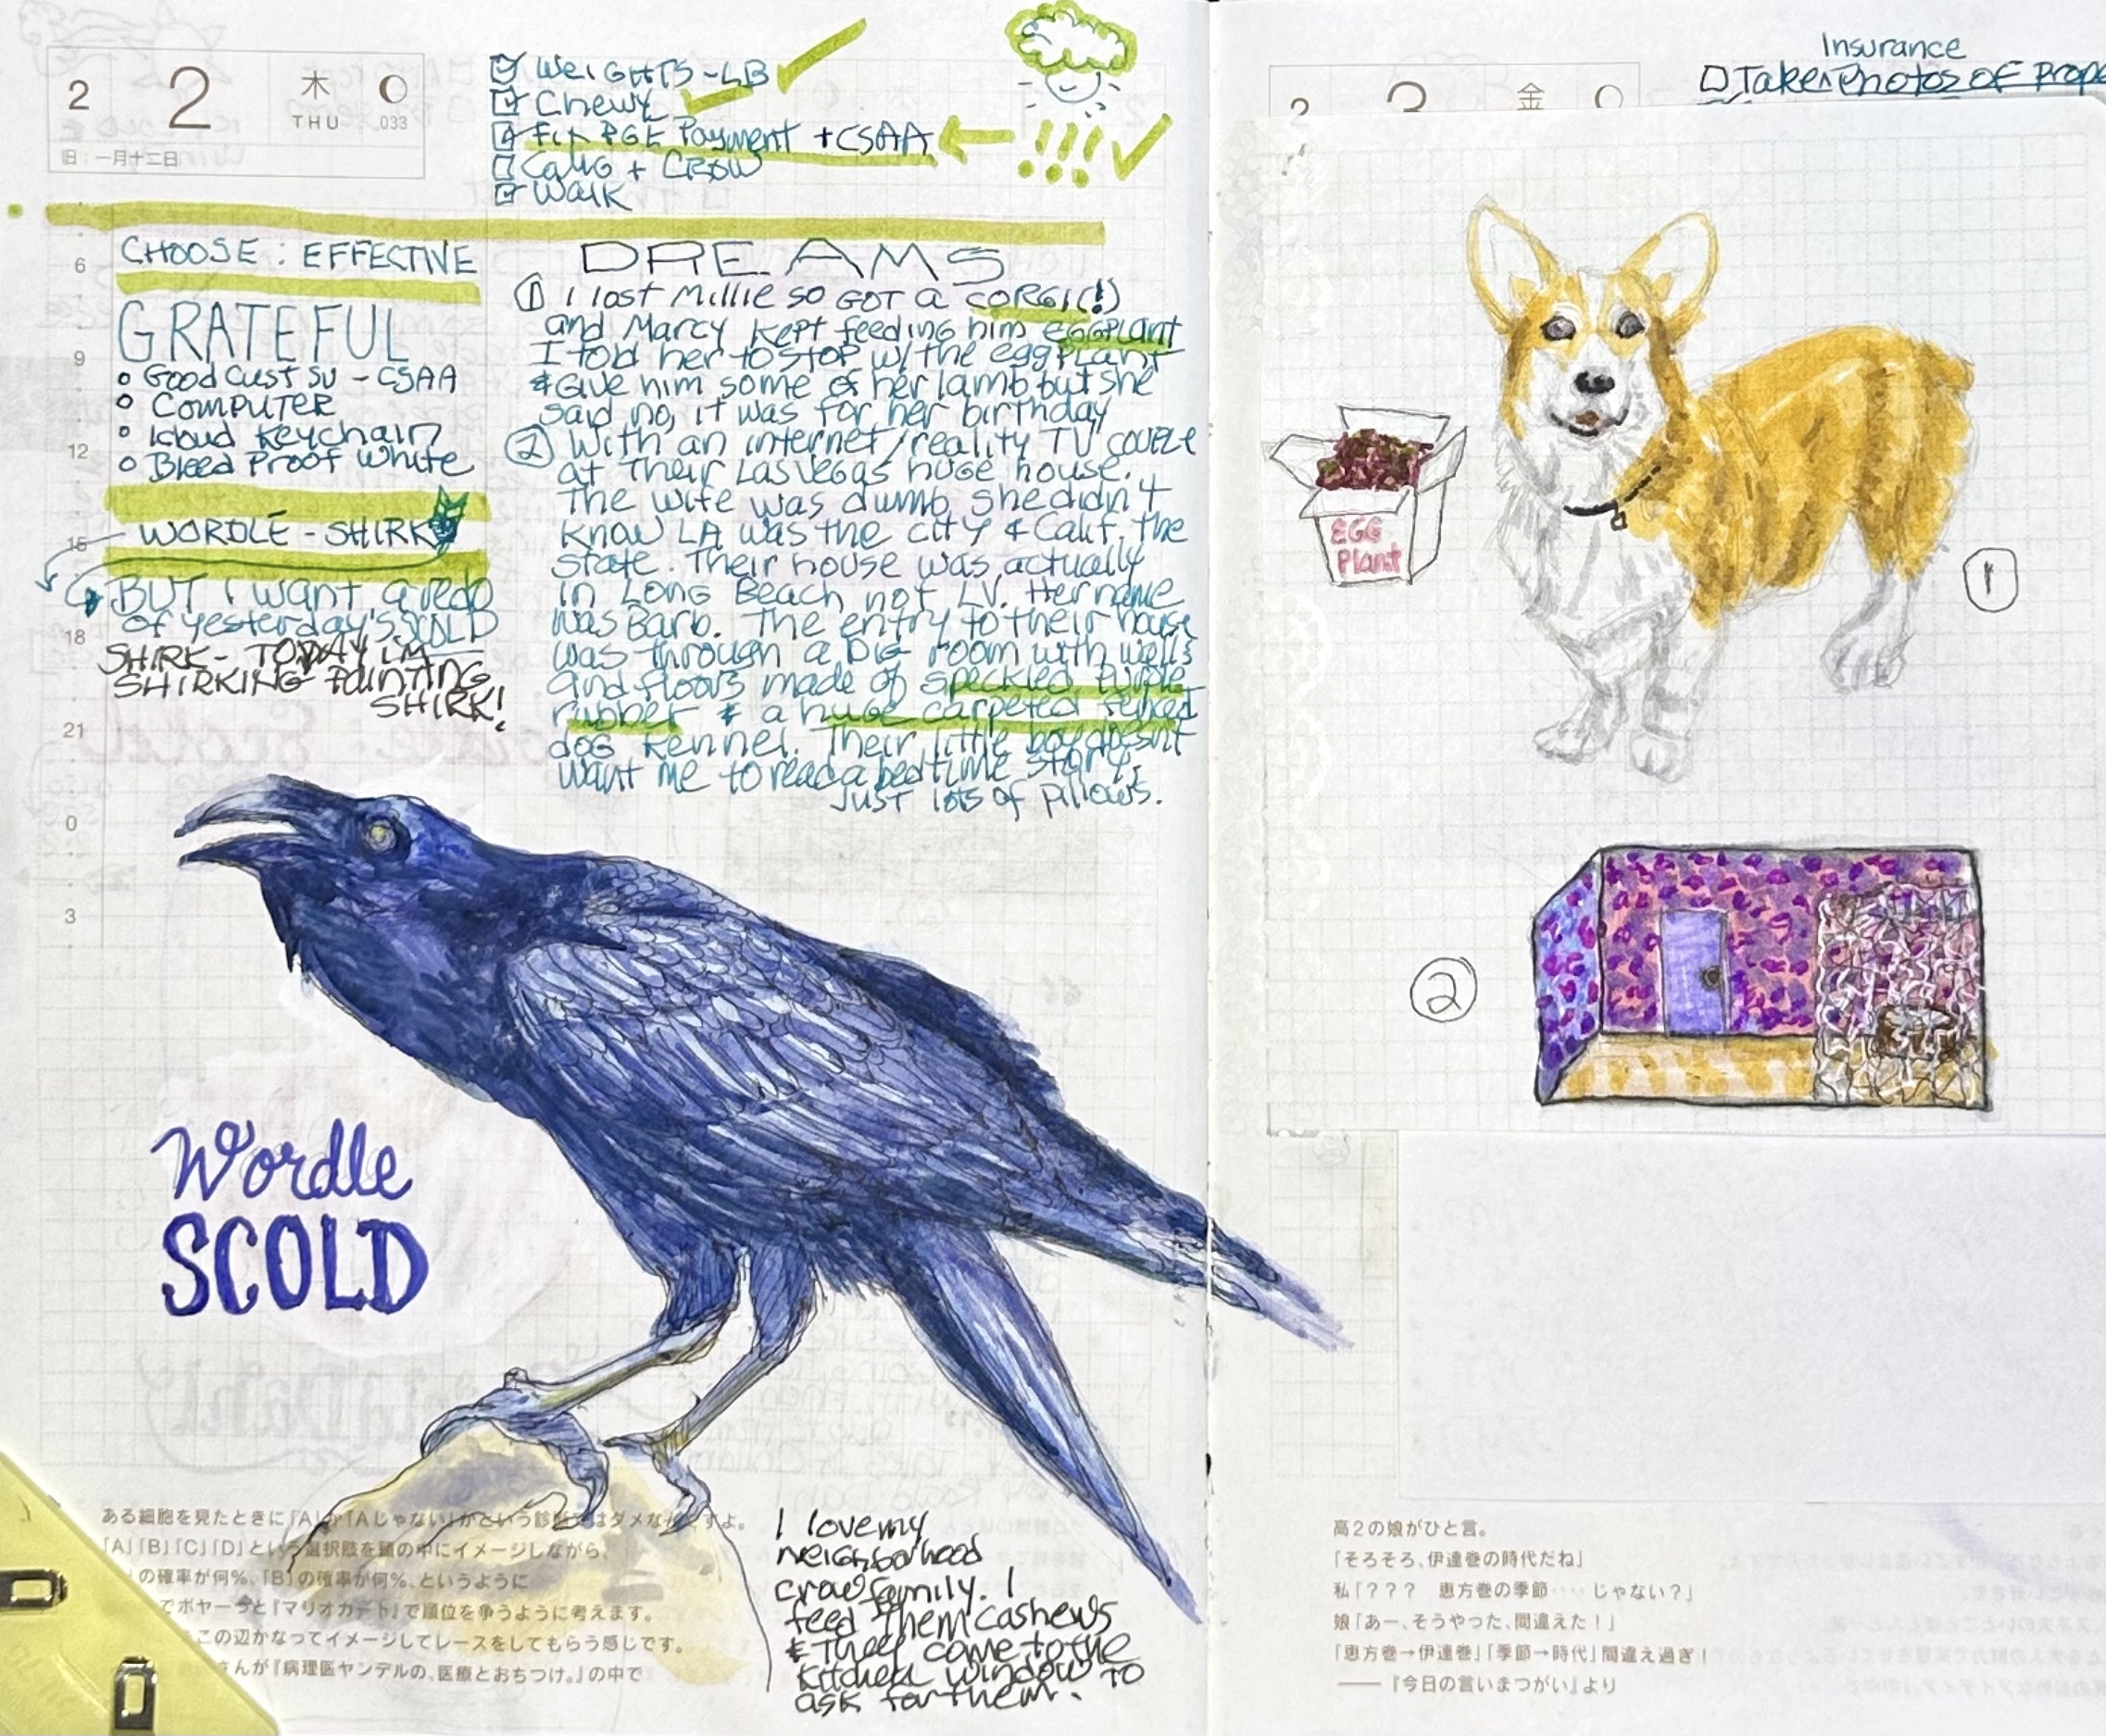 2 2 木 THU 033
旧:一月十二日
WEIGHTS-LB
Chewy
Fix PGE Payment + CSAA
!!!
CaMG + CROW
Walk
CHOOSE: EFFECTIVE
GRATEFUL
Good Cust SU - CSAA
COMPUTER
Icloud Keychain
Bleed Proof White
WORDLE - SHIRK
BUT I want a redo
of yesterday's SCOLD
SHIRK- TODAY I'M
SHIRKING PAINTING
SHIRK!
6
9
12
15
18
21
0
3
DREAMS
① I lost Millie so GOT a CORGI(!)
and Marcy kept feeding him EGGPLANT
I told her to stop w/ the eggplant
& Give him some of her lamb but she
said no, it was for her birthday
② With an internet/reality TV couple
at their Las Vegas huge house.
The wife was dumb, she didn't
know LA was the city & Calif. the
state. Their house was actually
in Long Beach not LV. Her name
was Barb. The entry to their house
was through a big room with walls
and floors made of speckled purple
rubber & a huge carpeted fenced
dog kennel. Their little boy doesn't
want me to read a bedtime story,
just lots of pillows.
Wordle
SCOLD
I love my
neighborhood
crow family. I
feed them cashews
& they come to the
kitchen window to
ask for them.
ある細胞を見たときに「A」か「Aじゃない」かという診断ではダメなんですよ。
「A」「B」「C」「D」という選択肢を頭の中にイメージしながら、
の確率が何%、「B」の確率が何%、というように
でボヤーっと『マリオカート』で順位を争うように考えます。
この辺かなってイメージしてレースをしてもらう感じです。
さんが『病理医ヤンデルの、医療とおちつけ。』の中で
Insurance
Take Photos of Prope
2 3 金
EGG
Plant
①
②
高2の娘がひと言。
「そろそろ、伊達巻の時代だね」
私「??? 恵方巻の季節‥‥じゃない?」
娘「あー、そうやった、間違えた!」
「恵方巻→伊達巻」「季節→時代」間違え過ぎ!
——『今日の言いまつがい』より